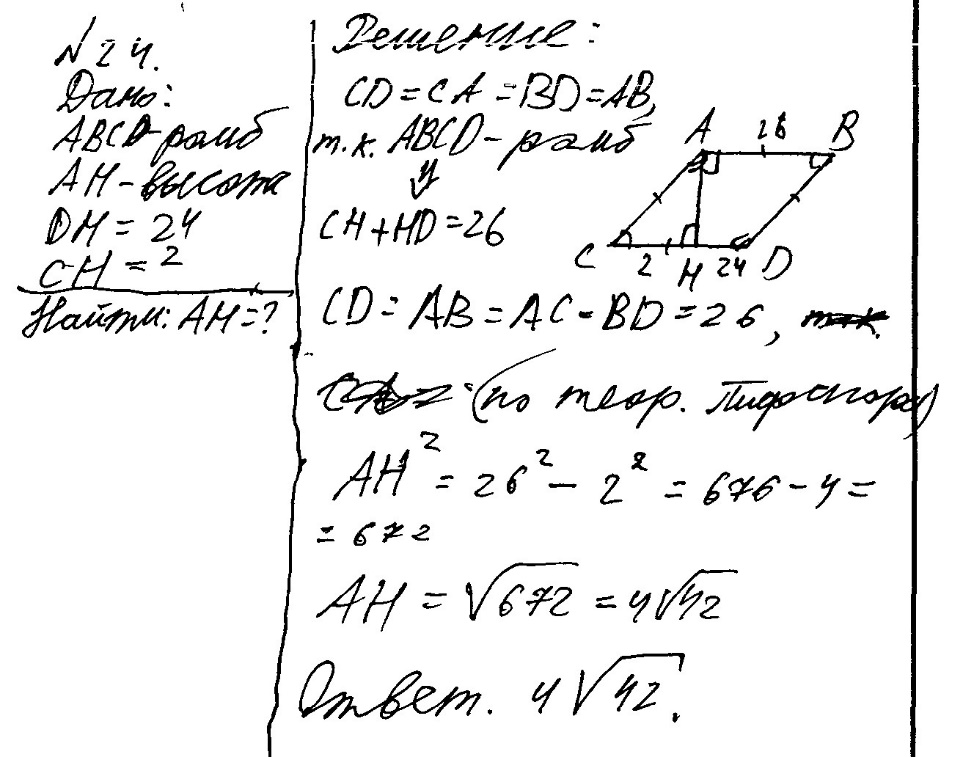 N 24.
Дано:
ABCD-ромб
AH-высота
DH = 24
CH = 2
Найти: AH=?
Решение:
CD = CA = BD = AB,
т.к. ABCD - ромб
⇓
CH + HD = 26
CD = AB = AC = BD = 26,
(по теор. Пифагора)
AH² = 26² - 2² = 676 - 4 =
= 672
AH = √672 = 4√42
Ответ. 4√42.
A 26 B
C 2 H 24 D